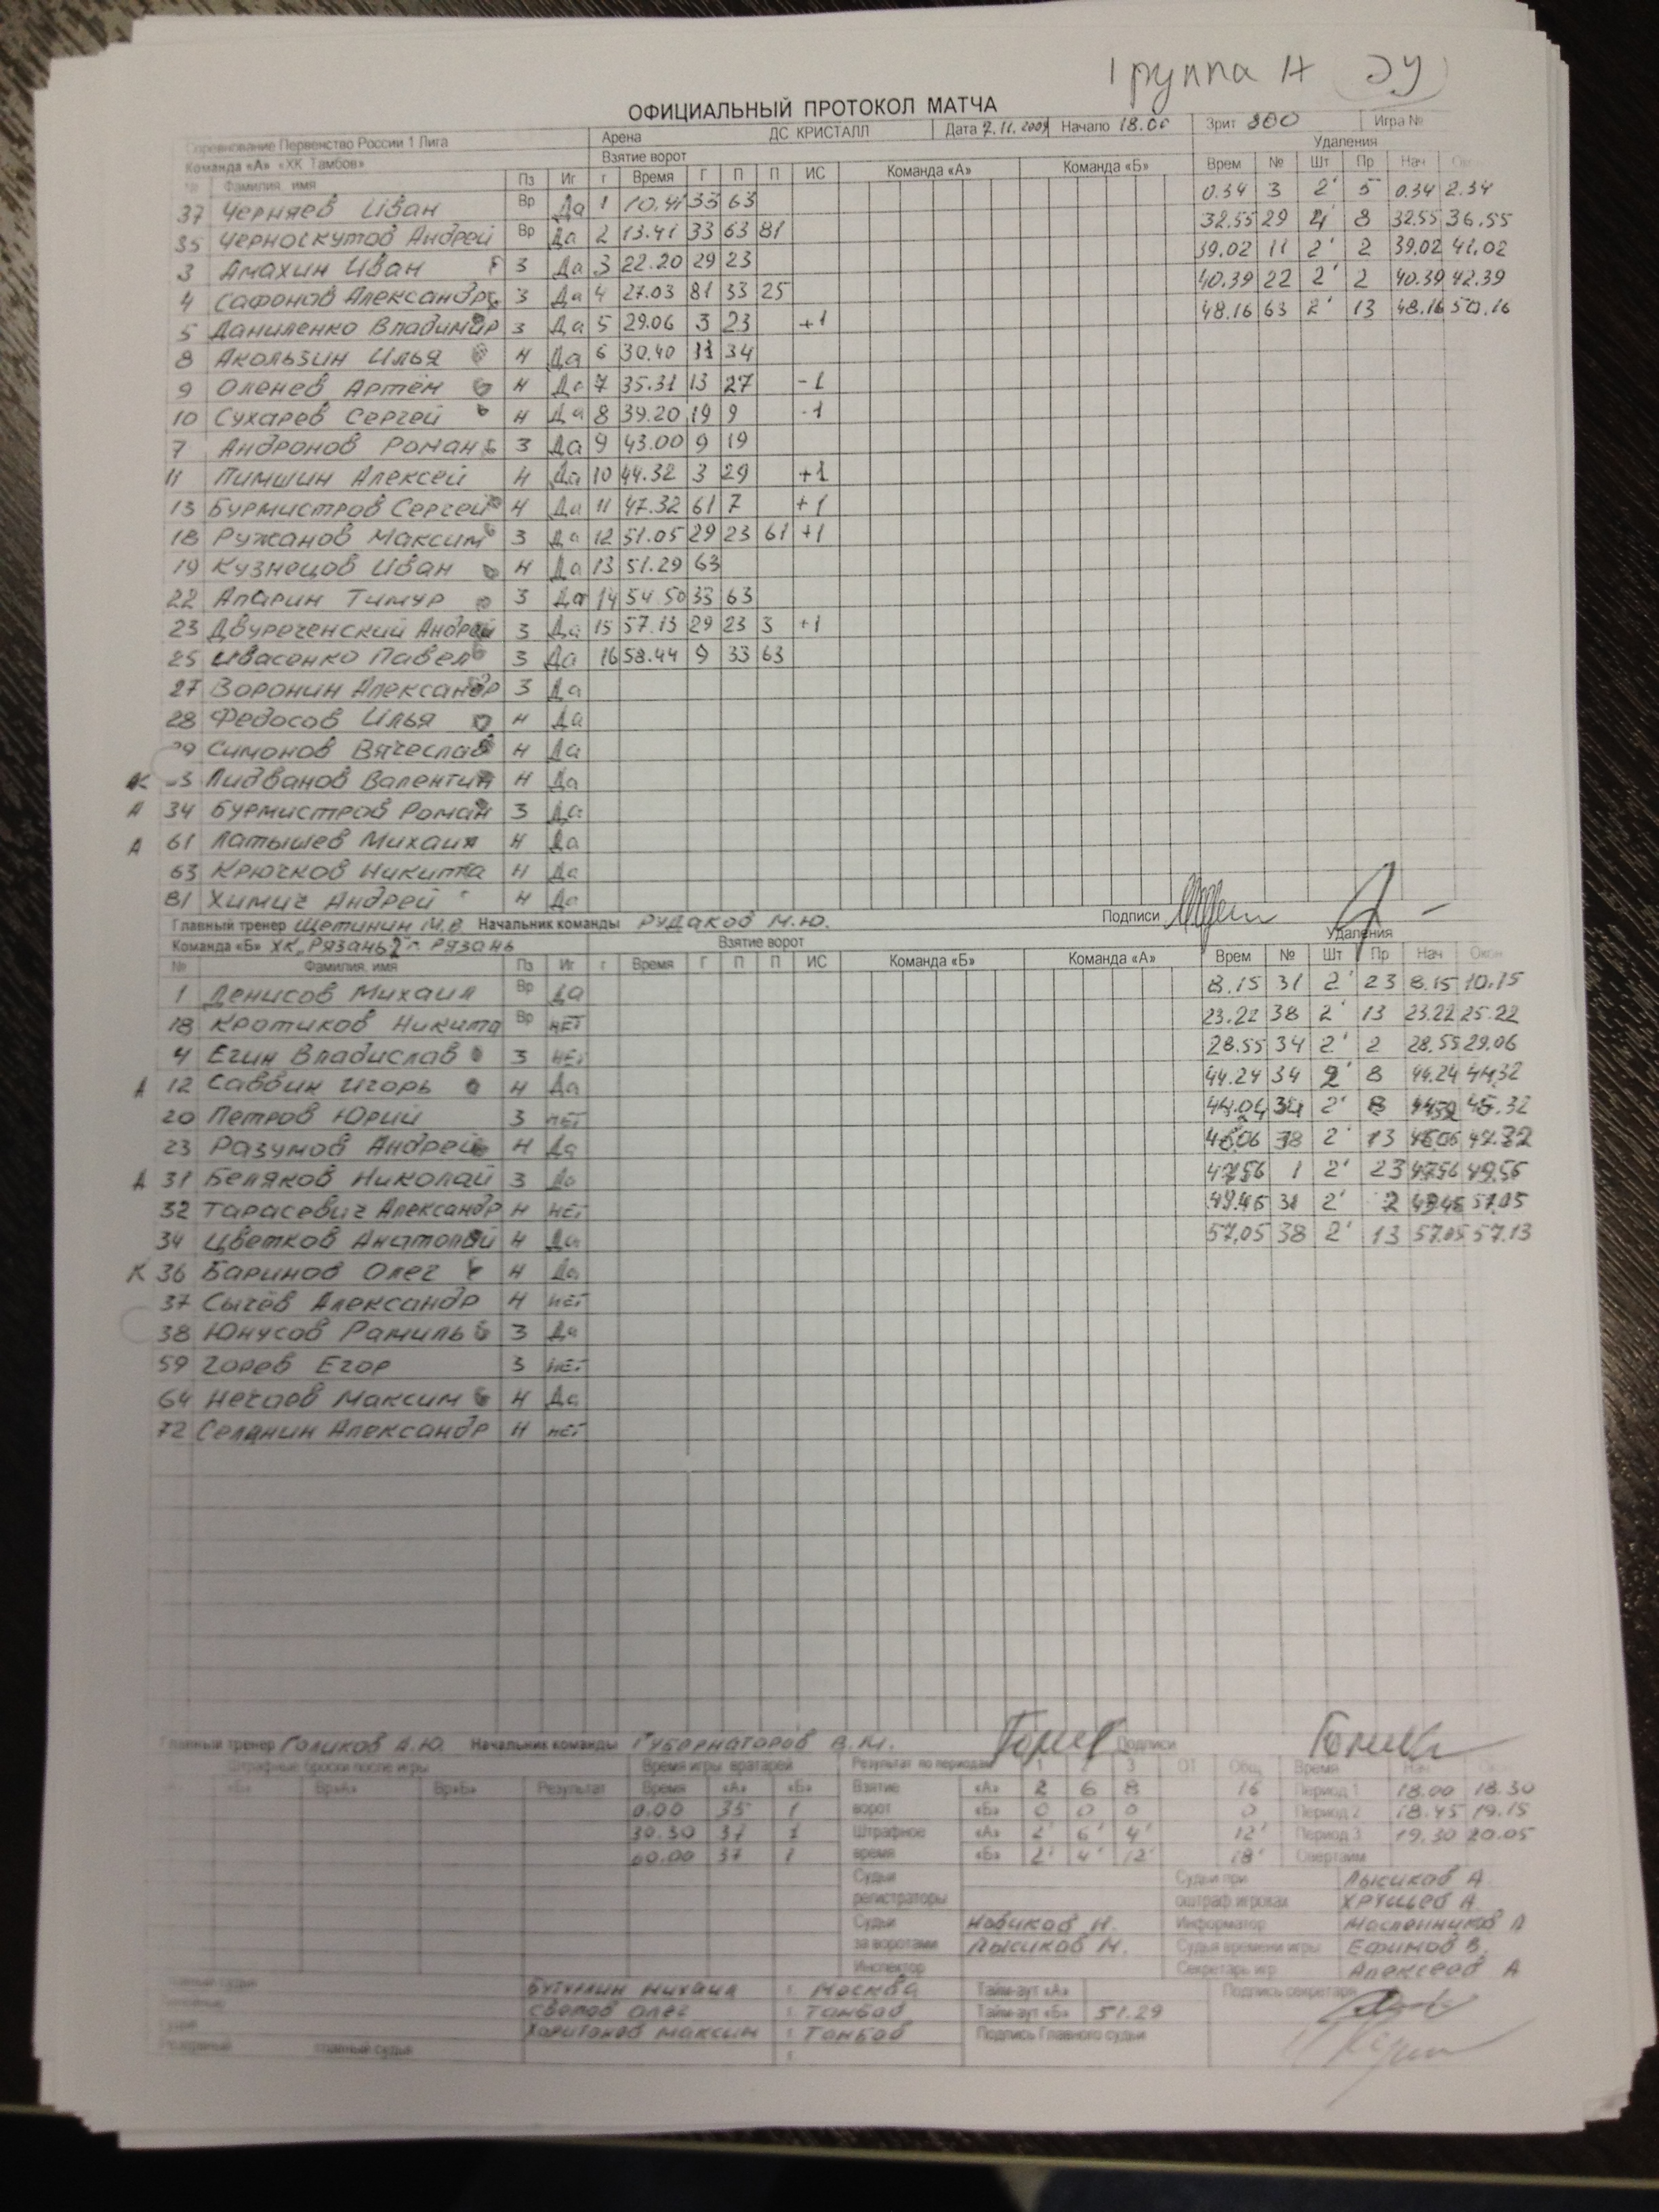 группа А
ОФИЦИАЛЬНЫЙ ПРОТОКОЛ МАТЧА
Соревнование Первенство России 1 Лига Арена ДС КРИСТАЛЛ Дата 7.11.2009 Начало 18.00 Зрит 800 Игра №
Команда «А» «ХК Тамбов» Взятие ворот Удаления
№ Фамилия, имя Пз Иг г Время Г П П ИС Команда «А» Команда «Б» Врем № Шт Пр Нач Окон
37 Черняев Иван Вр Да 1 10.41 33 63 0.34 3 2' 5 0.34 2.34
35 Черноскутов Андрей Вр Да 2 13.41 33 63 81 32.55 29 4' 8 32.55 36.55
3 Амахин Иван З Да 3 22.20 29 23 39.02 11 2' 2 39.02 41.02
4 Сафонов Александр З Да 4 27.03 81 33 25 40.39 22 2' 2 40.39 42.39
5 Даниленко Владимир З Да 5 29.06 3 23 +1 48.16 63 2' 13 48.16 50.16
8 Акользин Илья Н Да 6 30.40 11 34
9 Оленев Артём Н Да 7 35.31 13 27 -1
10 Сухарев Сергей Н Да 8 39.20 19 9 -1
7 Андронов Роман З Да 9 43.00 9 19
11 Пимшин Алексей Н Да 10 44.32 3 29 +1
13 Бурмистров Сергей Н Да 11 47.32 61 7 +1
18 Ружанов Максим З Да 12 51.05 29 23 61 +1
19 Кузнецов Иван Н Да 13 51.29 63
22 Апарин Тимур З Да 14 54.50 33 63
23 Двуреченский Андрей З Да 15 57.13 29 23 3 +1
25 Ивасенко Павел З Да 16 58.44 9 33 63
27 Воронин Александр З Да
28 Федосов Илья Н Да
29 Симонов Вячеслав Н Да
К 33 Лидванов Валентин Н Да
А 34 Бурмистров Роман З Да
А 61 Латышев Михаил Н Да
63 Крючков Никита Н Да
81 Химич Андрей Н Да
Главный тренер Щетинин М.В. Начальник команды Рудаков М.Ю. Подписи
Команда «Б» ХК "Рязань 2" г. Рязань Взятие ворот Удаления
№ Фамилия, имя Пз Иг г Время Г П П ИС Команда «Б» Команда «А» Врем № Шт Пр Нач Окон
1 Денисов Михаил Вр Да 8.15 31 2' 23 8.15 10.15
18 Кротиков Никита Вр нет 23.22 38 2' 13 23.22 25.22
4 Егин Владислав З нет 28.55 34 2' 2 28.55 29.06
А 12 Саввин Игорь Н Да 44.24 34 2' 8 44.24 44.32
20 Петров Юрий З нет 34 2' 8 45.32
23 Разумов Андрей Н Да 38 2' 13 47.32
А 31 Беляков Николай З Да 47.56 1 2' 23 47.56 49.56
32 Тарасевич Александр Н нет 49.46 31 2' 2
34 Цветков Анатолий Н Да 57.05 38 2' 13 57.05 57.13
К 36 Баринов Олег Н Да
37 Сычёв Александр Н нет
38 Юнусов Рамиль З Да
59 Горев Егор З нет
64 Нечаев Максим Н Да
72 Селянин Александр Н нет
Главный тренер Голиков А.Ю. Начальник команды Губернаторов В.М. Подписи
Штрафные броски после игры Время игры вратарей Результат по периодам 1 2 3 ОТ Общ Время Нач Окон
«Б» Вр«А» Вр«Б» Результат Время «А» «Б» Взятие «А» 2 6 8 16 Период 1 18.00 18.30
0.00 35 1 ворот «Б» 0 0 0 0 Период 2 18.45 19.15
30.30 37 1 Штрафное «А» 2' 6' 4' 12' Период 3 19.30 20.05
60.00 37 1 время «Б» 2' 4' 12' 18' Овертайм
Судьи Судьи при Лысиков А
регистраторы оштраф.игроках Хрущев А.
Судьи Новиков Н. Информатор Масленников А
за воротами Лысиков М. Судья времени игры Ефимов В.
Инспектор Секретарь игр Алексеев А
Главный судья Бутурлин Михаил г. Москва Тайм-аут «А» Подпись секретаря
Светов Олег г. Тамбов Тайм-аут «Б» 51.29
судьи Харитонов Максим г. Тамбов Подпись Главного судьи
Резервный главный судья г.